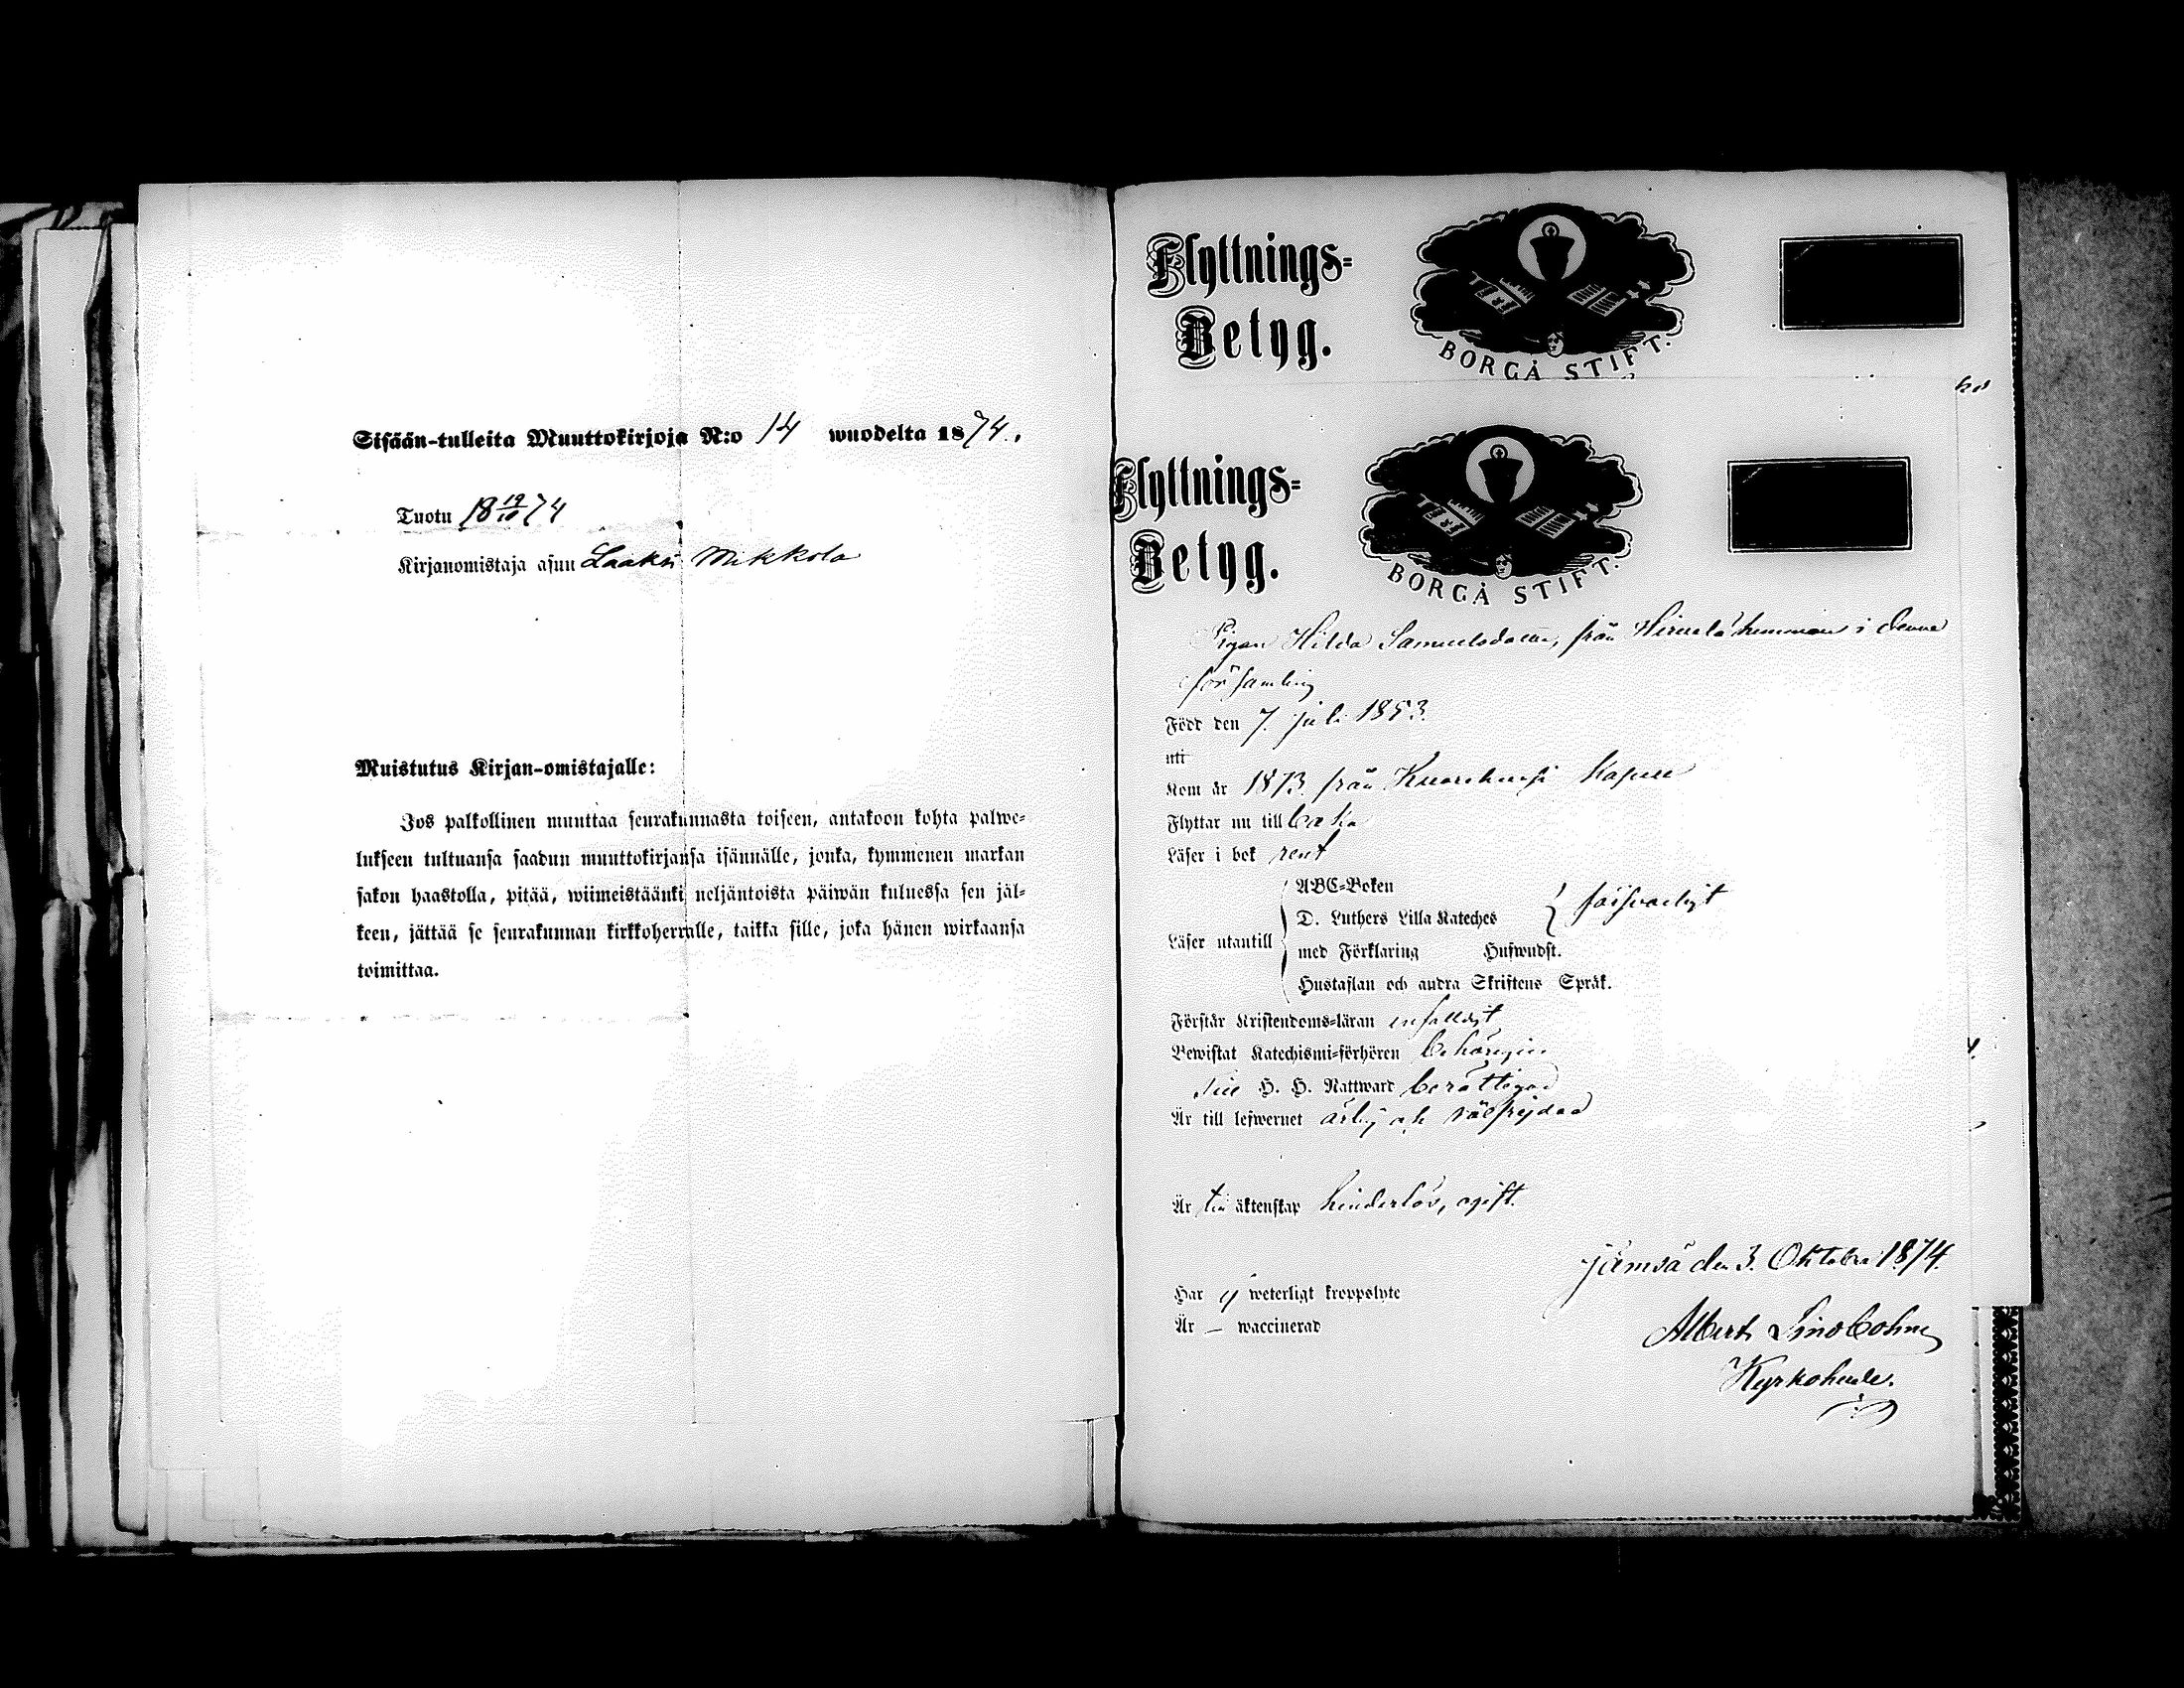 Sisään-tulleita Muuttokirjoja N:o 14 wuodelta 1874.
Tuotu 18 19/10 74
Kirjanomistaja asuu Laaksi Mikkola
Muistutus Kirjan-omistajalle:
Jos palkollinen muuttaa seurakunnasta toiseen, antakoon kohta palwe-
lukseen tultuansa saadun muuttokirjansa isännälle, jonka, kymmenen markan
sakon haastolla, pitää, wiimeistäänki neljäntoista päiwän kuluessa sen jäl-
keen, jättää se seurakunnan kirkkoherralle, taikka sille, joka hänen wirkaansa
toimittaa.
Flyttnings-
Betyg.
BORGÅ STIFT.
Flyttnings-
Betyg.
BORGÅ STIFT.
Pigan Hilda Samuelsdotter, från i denna
församling
Född den 7. juli 1853.
uti
Kom år 1873. från Kuorehvesi Kapell
Flyttar nu till
Läser i bok rent
ABC-Boken
D. Luthers Lilla Kateches } försvarligt
Läser utantill {
med Förklaring Huswudst.
Hustaflan och andra Skriftens Språk.
Förstår Kristendoms-läran enfaldigt
Bewistat Katechismi-förhören behörigen
till H. H. Nattward berättigad
Är till lefwernet ärlig och välfrejdad
Är till äktenskap hinderlös, ogift.
Jämsä den 3. Oktober 1874.
Har ej weterligt kroppslyte
Är — waccinerad
Albert
Kyrkoherde.